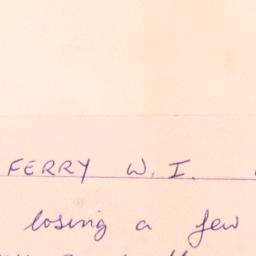 FERRY W. I.
losing a few